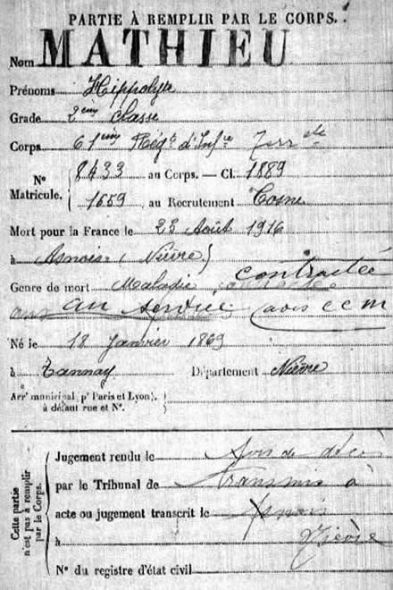 PARTIE À REMPLIR PAR LE CORPS.
Nom MATHIEU
Prénoms Hippolyte
Grade 2ème classe
Corps 61ème Régt d'Infie Terrale
No Matricule. 8433 au Corps. — Cl. 1889
1659 au Recrutement Cosne
Mort pour la France le 23 Août 1916
à Asnois (Nièvre)
Genre de mort Maladie contractée
au service (avis CCM
Né le 18 Janvier 1869
à Tannay Département Nièvre
Arrt municipal (pr Paris et Lyon),
à défaut rue et No.
Cette partie n'est pas à remplir par le Corps.
Jugement rendu le Avis de décès
par le Tribunal de transmis à
acte ou jugement transcrit le Asnois
à Nièvre
No du registre d'état civil